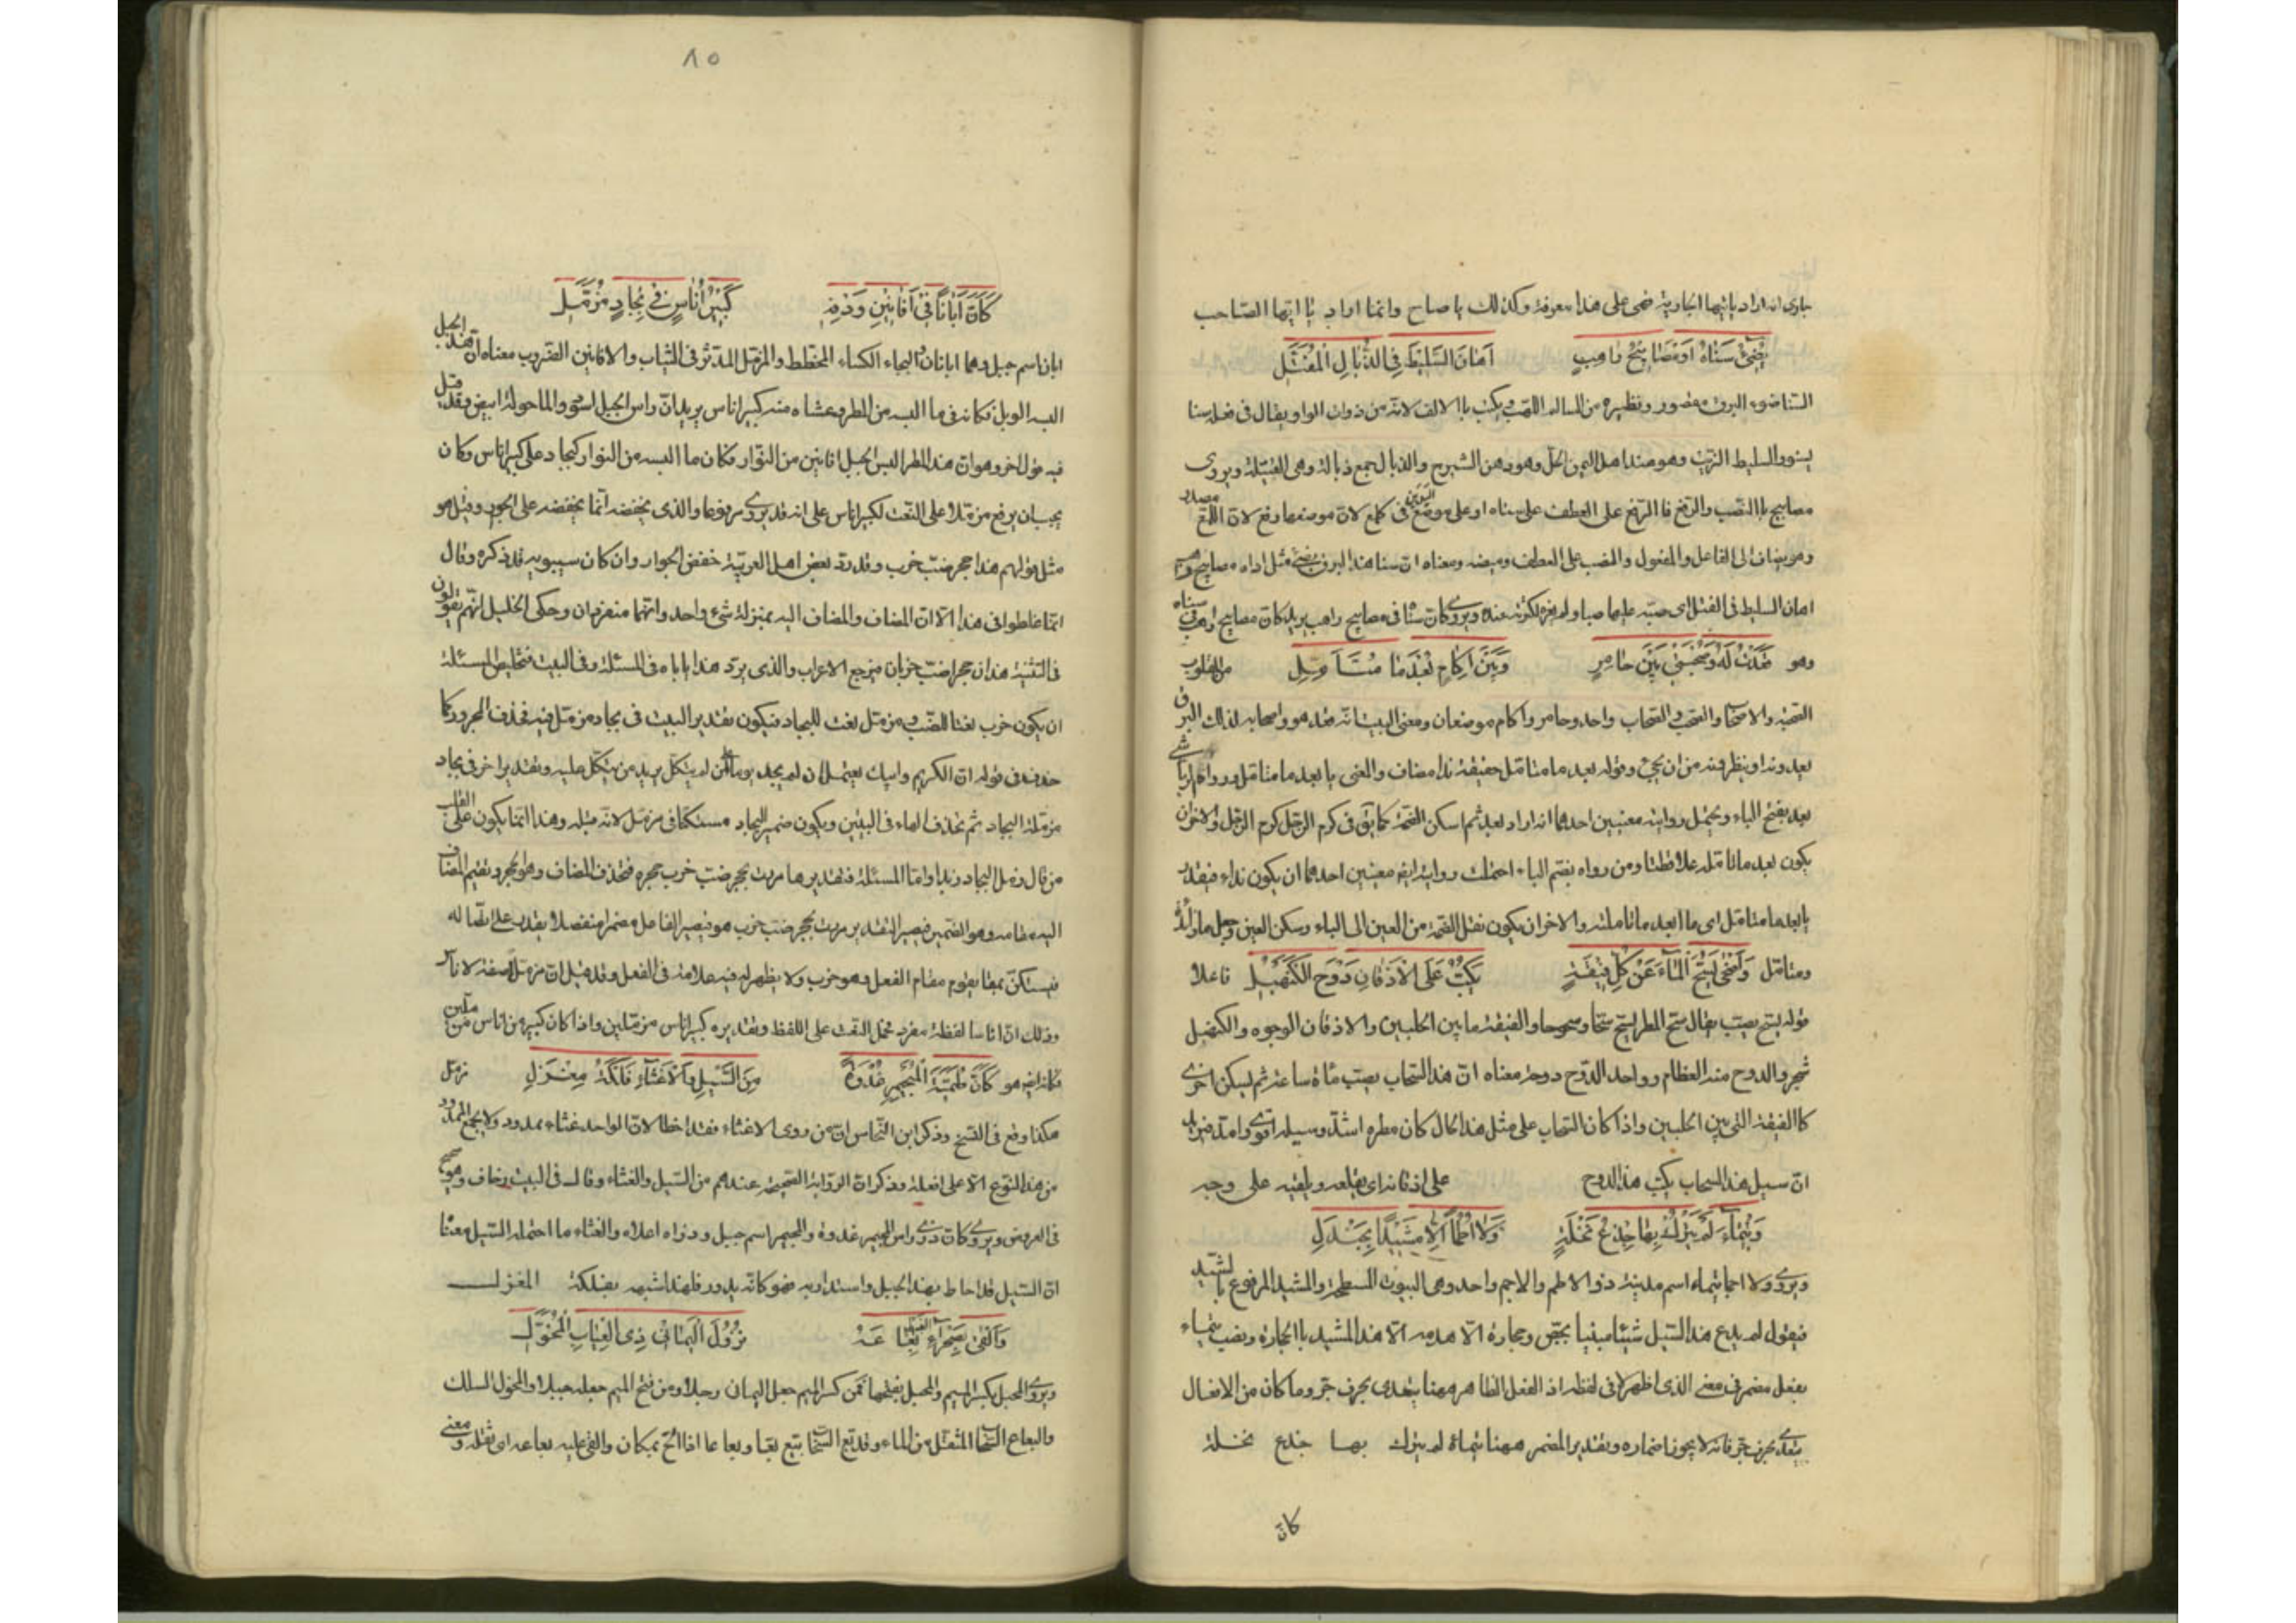 جارى انه اراد يا ايتها الجارية فهى على هذا معرفة وكذلك يا صاح وانما اراد يا ايها الصاحب
يُضِىءُ سَنَاهُ اَوْ مَصَابِيْحُ رَاهِبٍ اَهَانَ السَّلِيْطَ فِى الذُّبَالِ الْمُفَتَّلِ
السنا ضوء البرق مقصور ونظيره من السالم اللهب ويكتب بالالف لانه من ذوات الواو ويقال فى فعله سنا
يسنو والسليط الزيت وهو عند اهل اليمن الخل وهو دهن الشيرج والذبال جمع ذبالة وهى الفتيلة ويروى
مصابيح بالنصب والرفع فالرفع على العطف على سناه او على موضع اليدين فى كلمع لان موضعها رفع لان اللمع مصدر
وهو يضاف الى الفاعل والمفعول والنصب على العطف ومعناه ان سنا هذا البرق يضىء مثل اداه مصابيح
اهان السليط فى الفتل اى صبه عليها صبا ولم يعزه لكثرته عنده ويروى كان سنا فى مصابيح راهب يريد كان مصابيح راهب فى سناه
وهو قَعَدْتُ لَهُ وَصُحْبَتِىْ بَيْنَ حَامِرٍ وَبَيْنَ اِكَامٍ بُعْدَ مَا مُتَاَمَّلِ من المقلوب
الصحبة والاصحاب والصحب والصحاب واحد وحامر واكام موضعان ومعنى البيت انه قعد هو واصحابه لذلك البرق
بعد وقوله بعد ما متامل حقيقة ندا مضاف والمعنى يا بعد ما متامل
بعد بفتح الباء ويحتمل روايته معنيين احدهما انه اراد بعد ثم اسكن الضمة كما يق فى كرم الرجل كرم الرجل والاخر ان
يكون بعد ما تامله ومن رواه بضم الباء احتملت روايته ايضا معنيين احدهما ان يكون نداء فيقدر
يا بعد ما متامل اى ما ابعد ما تاملته والاخر ان يكون نقل الضمة من العين الى الباء وسكن العين وجعل ما زائدة
ومتامل وَاَضْحٰى يَسُحُّ الْمَاءَ عَنْ كُلِّ فِيْقَةٍ يَكُبُّ عَلَى الْاَذْقَانِ دَوْحَ الْكَنَهْبَلِ فاعلا
قوله يسح يصب يقال سح المطر يسح سحا وسحوحا والفيقة ما بين الحلبتين والاذقان الوجوه والكنهبل
شجر والدوح منه العظام وواحد الدوح دوحة معناه ان هذا السحاب يصب ماءه ساعة ثم يسكن اخرى
كالفيقة التى بين الحلبتين واذا كان السحاب على مثل هذا الحال كان مطره اشد وسيله اقوى وامتد فيريد
ان سيل هذا السحاب يكب هذا الدوح على اذقانه اى يقلعه ويلقيه على وجهه
وَتَيْمَاءَ لَمْ يَتْرُكْ بِهَا جِذْعَ نَخْلَةٍ وَلَا اُطُمًا اِلَّا مَشِيْدًا بِجَنْدَلِ
ويروى ولا اجما تيماء اسم مدينة والاطم والاجم واحد وهى البيوت المسطحة والمشيد المرفوع بالشيد
فيقول لم يدع هذا السيل شيئا مبنيا بجص وحجارة الا هدمه الا هذا المشيد بالحجارة ونصب تيماء
بفعل مضمر فى معنى الذى اظهر لا فى لفظه اذ الفعل الظاهر ههنا يتعدى بحرف جر وما كان من الافعال
يتعدى بحرف جر فانه لا يجوز اضماره وتقدير المضمر ههنا تيماء لم يترك بها جذع نخلة
كانّ
٨٥
كَاَنَّ اَبَانًا فِىْ اَفَانِيْنِ وَدْقِهٖ كَبِيْرُ اُنَاسٍ فِىْ بِجَادٍ مُزَمَّلِ
ابان اسم جبل وهما ابانان والبجاد الكساء المخطط والمزمل المدثر فى الثياب والافانين الضروب معناه ان هذا الجبل
البسه الوبل فكانه فى ما البسه من المطر وغشاه منه كبير اناس يريد ان راس الجبل اسود والماء حوله ابيض وقد قيل
فيه قول اخر وهو ان هذا المطر البس الجبل افانين من النوار فكان ما البسه من النوار كبجاد على كبير اناس وكان
يجب ان يرفع مزملا على النعت لكبير اناس على انه قد يروى مرفوعا والذى يخفضه انما يخفضه على الجوار وقيل هو
مثل قولهم هذا حجر ضب خرب وقد رد بعض اهل العربية خفض الجوار وان كان سيبويه قد ذكره وقال
انما غلطوا فى هذا الا ان المضاف والمضاف اليه بمنزلة شىء واحد وانهما منفردان وحكى الخليل انهم يقولون
فى التثنية هذان حجرا ضب خربان فيرجع الاعراب والذى يرد هذا ياباه فى المسئلة وفى البيت فتخليص المسئلة
ان يكون خرب نعتا للضب ومزمل نعت للبجاد فيكون تقدير البيت فى بجاد مزمل فيه فحذف المجرور كما
حذفه فى قوله ان الكريم وابيك يعتمل ان لم يجد يوما على من يتكل يريد من يتكل عليه وتقدير اخر فى بجاد
مزمله البجاد ثم تحذف الهاء فى البيت ويكون ضمير البجاد مستكنا فى مزمل لانه مثله وهذا انما يكون على القلب
من قال زمل البجاد زيدا واما المسئلة فتقديرها مررت بحجر ضب خرب حجره فتحذف المضاف وهو الحجر وتقيم المضاف
اليه مقامه وهو الضمير فيصير التقدير مررت بحجر ضب خرب هو فيصير الفاعل مضمرا منفصلا يقدر على اتصاله
فيستكن بما يقوم مقام الفعل وهو خرب ولا يظهر له فيه علامة فى الفعل وقد قيل ان مزمل صفة لاناس
وذلك ان اناسا لفظة مفرد فحمل النعت على اللفظ وتقديره كبير اناس مزملين واذا كان كبير من اناس مزملين
فكانه ايضا هو كَاَنَّ طَمِيَّةَ الْمُجَيْمِرِ غُدْوَةً مِنَ السَّيْلِ وَالْاَغْثَاءِ فَلْكَةُ مِغْزَلِ مزمل
هكذا وقع فى النسخ وذكر ابن النحاس ان من روى الاغثاء فقد اخطا لان الواحد غثاء ممدود ولا يجمع الممدود
من هذا النوع الا على افعلة وذكر ان الرواية الصحيحة عندهم من السيل والغثاء وقال فى البيت زحاف وهو صحيح
فى العروض ويروى كان ذرى راس المجيمر غدوة والمجيمر اسم جبل وذراه اعلاه والغثاء ما احتمله السيل معناه
ان السيل قد احاط بهذا الجبل واستدار به فهو كانه يدور فلهذا شبهه بفلكة المغزل
وَاَلْقٰى بِصَحْرَاءِ الْغَبِيْطِ بَعَاعَهُ نُزُوْلَ الْيَمَانِىْ ذِى الْعِيَابِ الْمُخَوَّلِ
ويروى المحمل بكسر الميم والمحمل بفتحها فمن كسر الميم جعل اليمان رجلا ومن فتح الميم جعله جملا والمخول
والبعاع السحاب المثقل من الماء وقد بع السحاب يبع بعا وبعاعا اذا الح بمكان والقى عليه بعاعه اى ثقله ومعنى